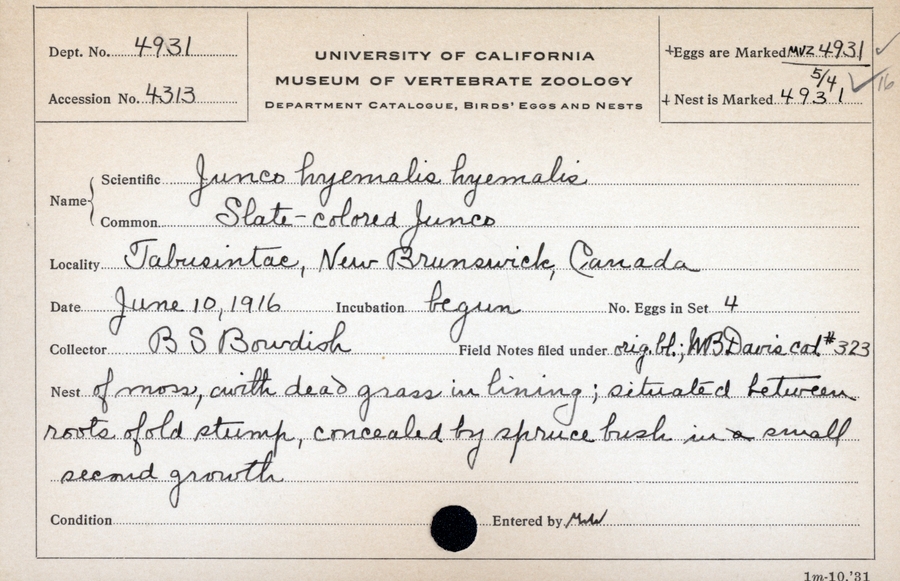 Dept. No. 4931
Accession No. 4313
UNIVERSITY OF CALIFORNIA
MUSEUM OF VERTEBRATE ZOOLOGY
DEPARTMENT CATALOGUE, BIRDS' EGGS AND NESTS
+Eggs are Marked MVZ 4931 ✓
5/4
+ Nest is Marked 4931 ✓ 16
Name { Scientific Junco hyemalis hyemalis
Common Slate-colored Junco
Locality Tabusintac, New Brunswick, Canada
Date June 10, 1916 Incubation begun No. Eggs in Set 4
Collector B S Bowdish Field Notes filed under orig. bl.; WB Davis cat #323
Nest of moss, with dead grass in lining; situated between
roots of old stump, concealed by spruce bush in a small
second growth
Condition Entered by
1m-10,'31